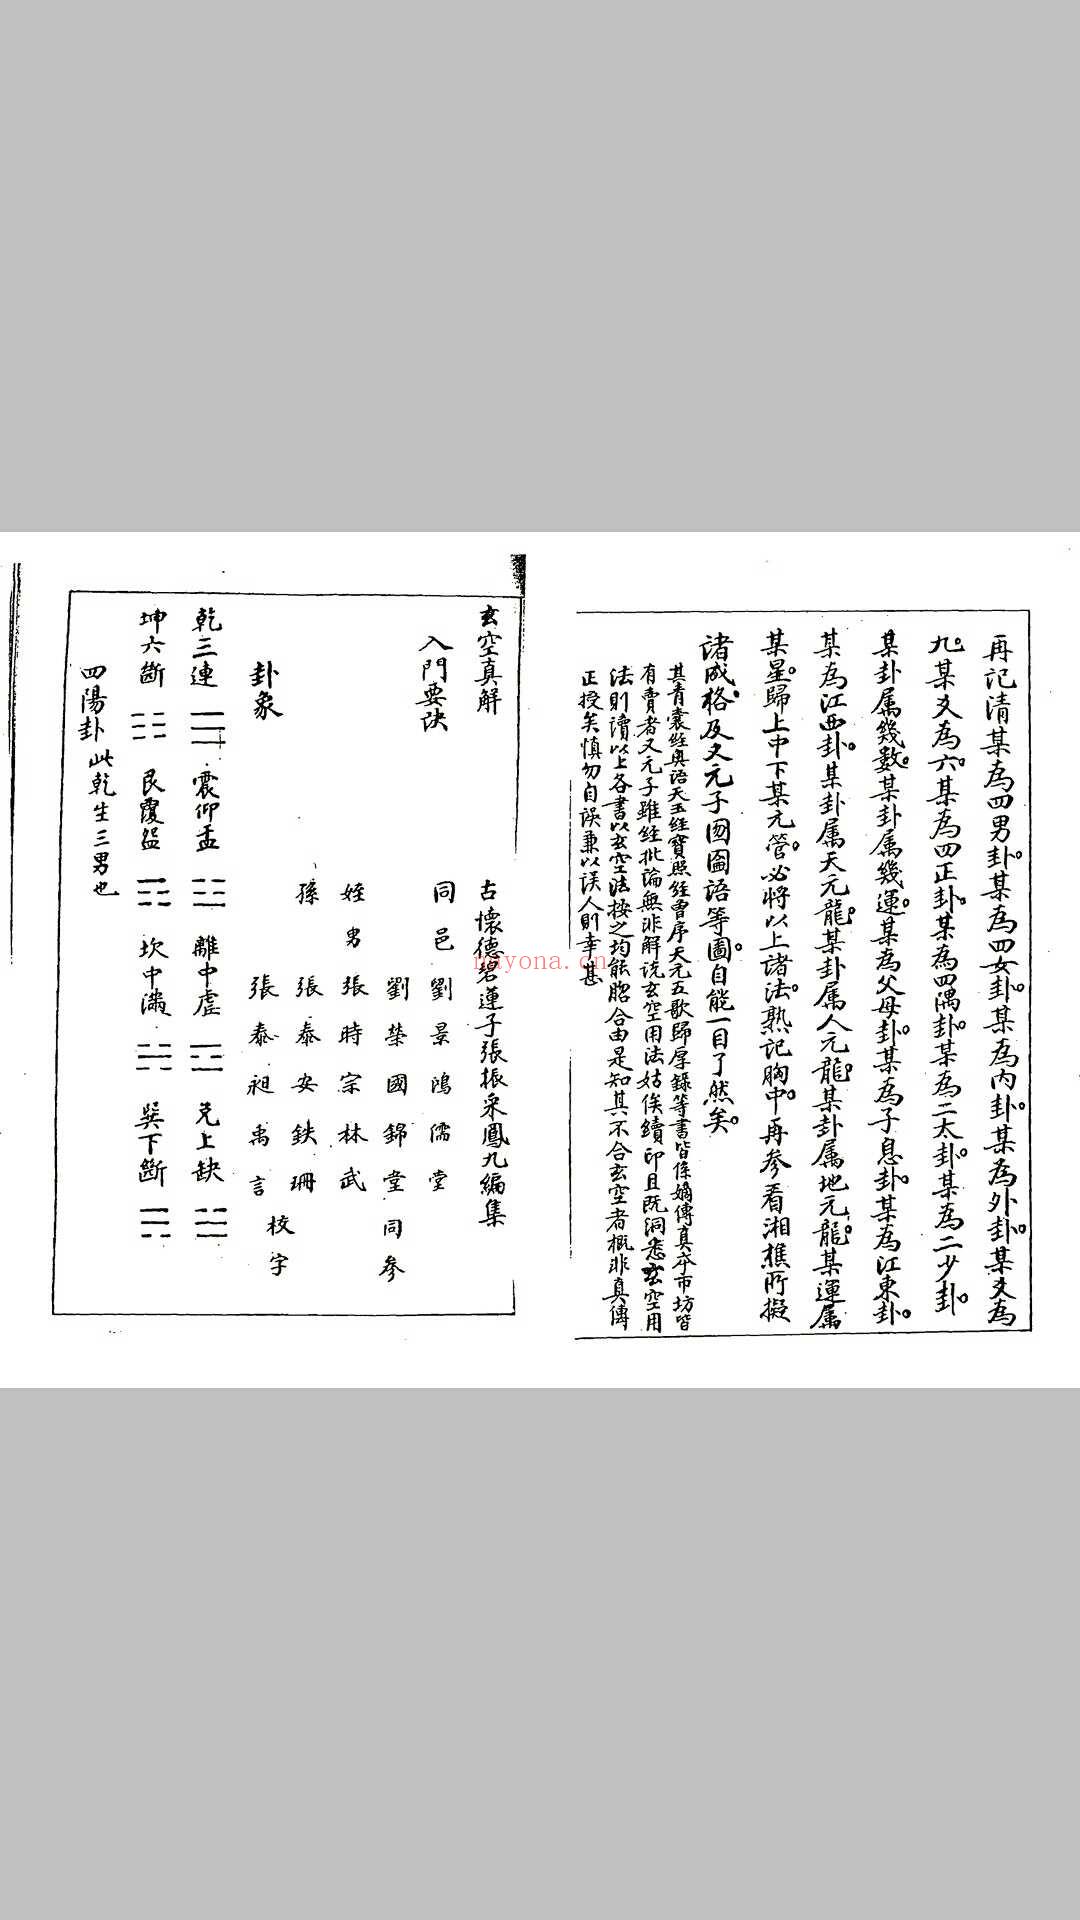 再記清某為四男卦。某為四女卦。某為內卦。某為外卦。某爻為
九。某爻為六。某為四正卦。某為四隅卦。某為二太卦。某為二少卦。
某卦属幾數。某卦属幾運。某為父母卦。某為子息卦。某為江東卦。
某為江西卦。某卦属天元龍。某卦属人元龍。某卦属地元龍。某運属
某星。歸上中下某元管。必將以上諸法。熟記胸中。再参看湘樵所擬
諸成格。及文元子囫圇語等圖。自能一目了然矣。
其青囊經奥語天玉經寶照經曾序天元五歌歸厚錄等書皆係嫡傳真本市坊皆
有賣者又元子雖經批論無非解説玄空用法姑俟續印且既洞悉玄空用
法則讀以上各書以玄空法按之均能脗合由是知其不合玄空者概非真傳
正授矣慎勿自誤兼以误人則幸甚
玄空真解
古懷德碧蓮子張振采鳳九編集
入門要訣
同邑劉景鴻儒堂
劉榮國錦堂同參
姪男張時宗林武
孫張泰安鉄珊
張泰昶禹言
校字
卦象
乾三連 ☰ 震仰盂 ☳ 離中虛 ☲ 兌上缺 ☱
坤六斷 ☷ 艮覆盌 ☶ 坎中滿 ☵ 巽下斷 ☴
四陽卦 此乾生三男也
mayona.cn